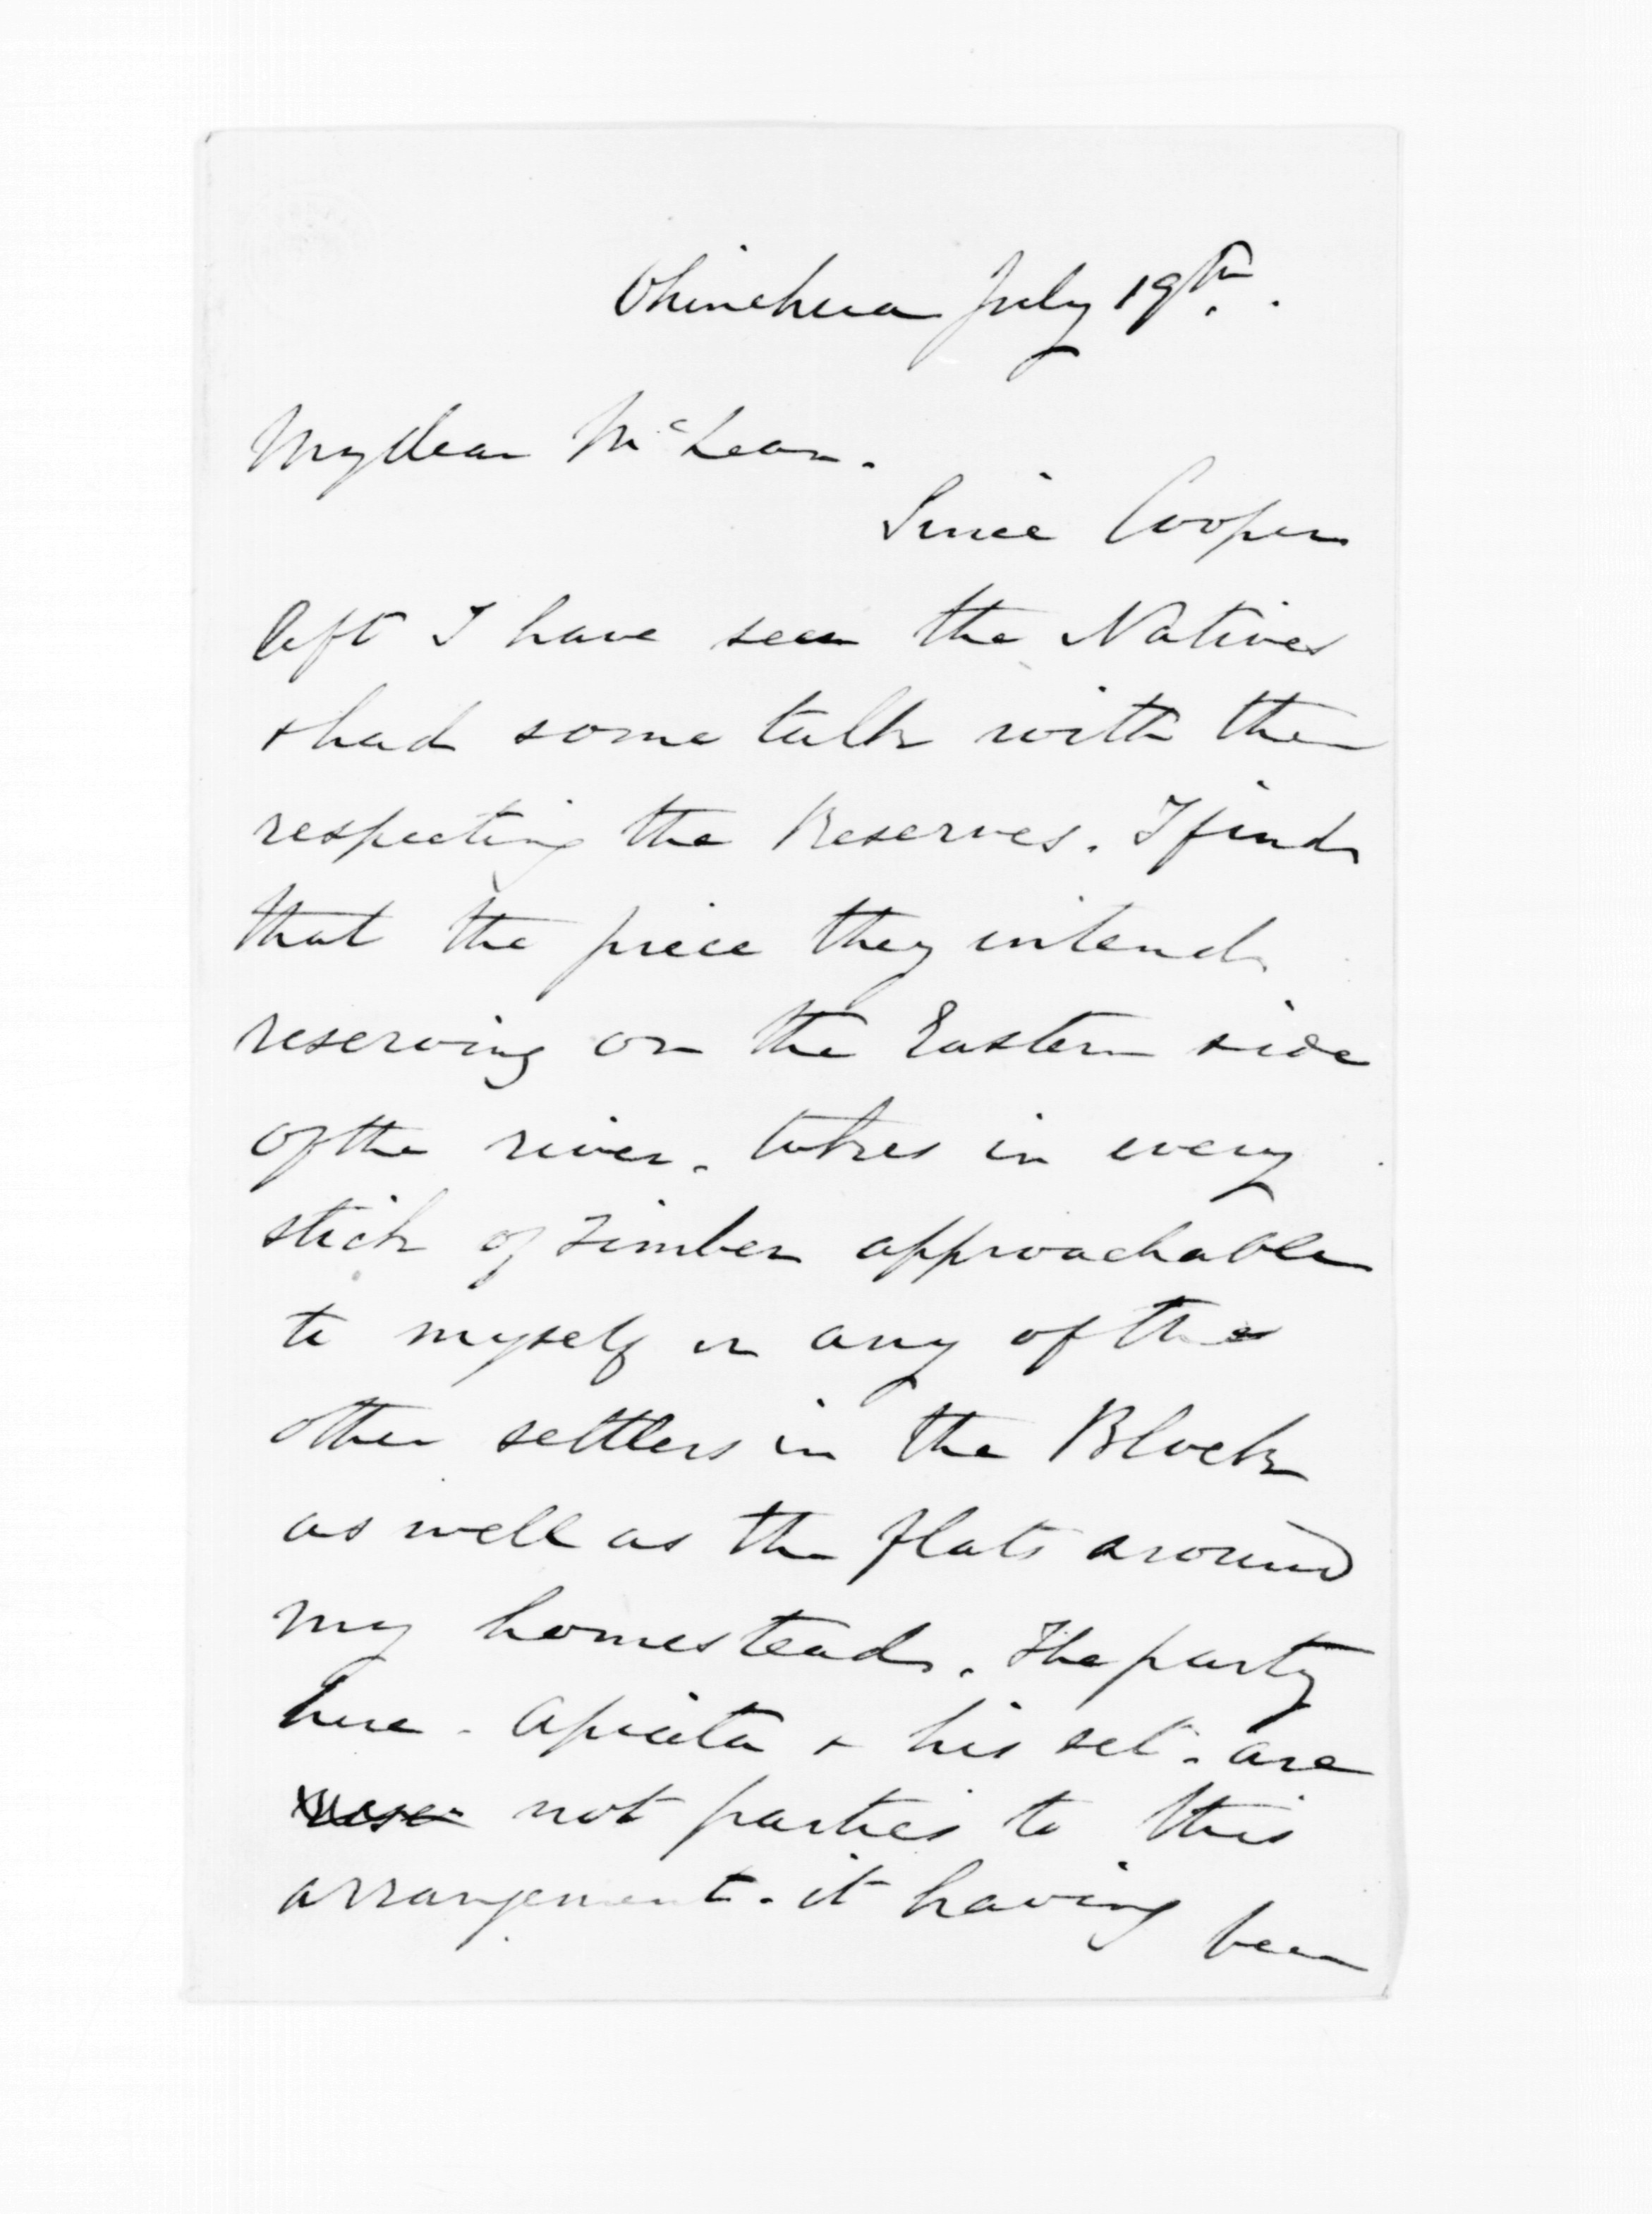 Ohinehua July 19th.
My dear McLean.
Since Cooper
left I have seen the Natives
& had some talk with them
respecting the Reserves. I find
that the piece they intend
reserving on the Eastern side
of the river. takes in every
stick of timber approachable
to myself or any of the
other settlers in the Block
as well as the flats around
my homestead. The party
here - & his set. are
not parties to this
arrangement. it having been